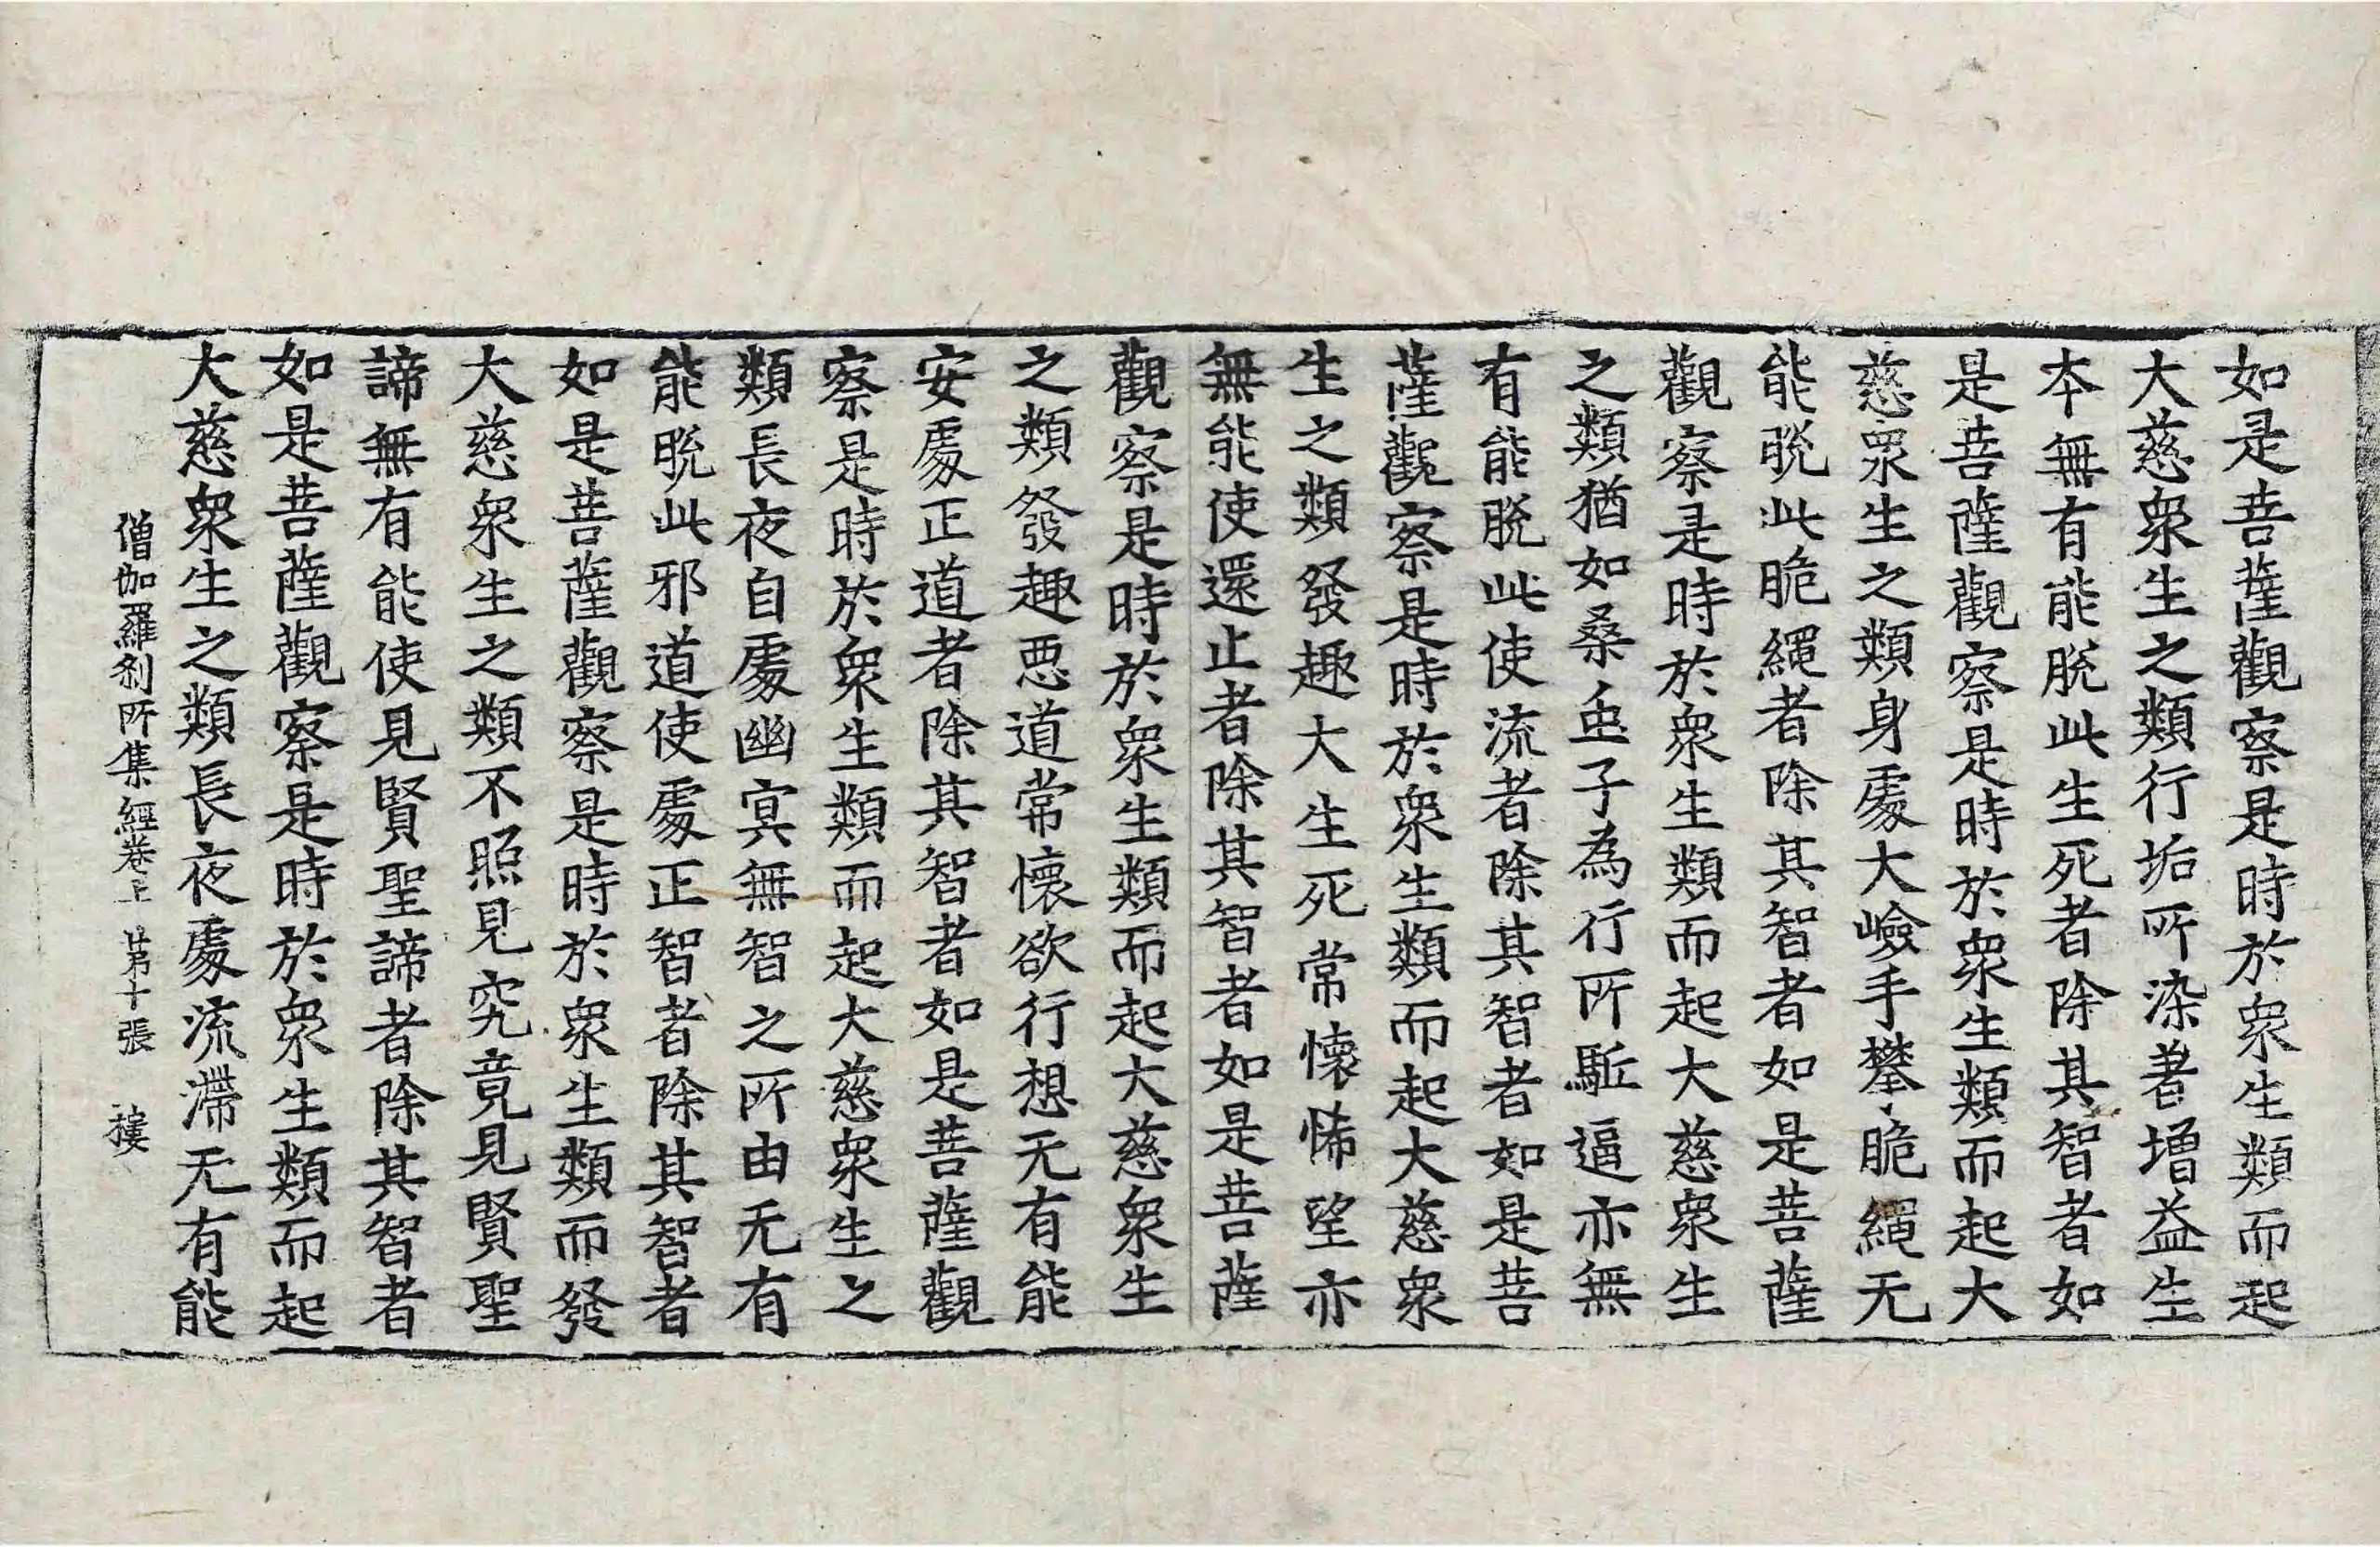 如是菩薩觀察是時於衆生類而起
大慈衆生之類行垢所染著增益生
本無有能脫此生死者除其智者如
是菩薩觀察是時於衆生類而起大
慈衆生之類身處大嶮手攀脆繩无
能脫此脆繩者除其智者如是菩薩
觀察是時於衆生類而起大慈衆生
之類猶如桑虫子為行所駈逼亦無
有能脫此使流者除其智者如是菩
薩觀察是時於衆生類而起大慈衆
生之類發趣大生死常懷悕望亦
無能使還止者除其智者如是菩薩
觀察是時於衆生類而起大慈衆生
之類發趣惡道常懷欲行想无有能
安處正道者除其智者如是菩薩觀
察是時於衆生類而起大慈衆生之
類長夜自處幽冥無智之所由无有
能脫此邪道使處正智者除其智者
如是菩薩觀察是時於衆生類而發
大慈衆生之類不照見究竟見賢聖
諦無有能使見賢聖諦者除其智者
如是菩薩觀察是時於衆生類而起
大慈衆生之類長夜處流滯无有能
僧伽羅刹所集經卷上 第十張 樓